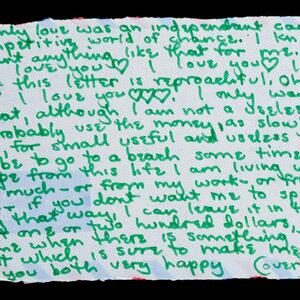 only love was independent ca
petitive world of chance. I kn
ant anything like that for me.
I love you♡ I love you♡ I
t this letter is reproachful, Ol
I love you♡♡♡. I only wa
at, although I am not a sele
robably use the money as slow
for small useful and useless
be to go to a beach some time
pe from this life I am living fr
much - or from my work-
if you don't want me to sp
that way, I can leave it in t
d one or two hundred dollars,
me when there is something
t which is sure to make me
you both very happy